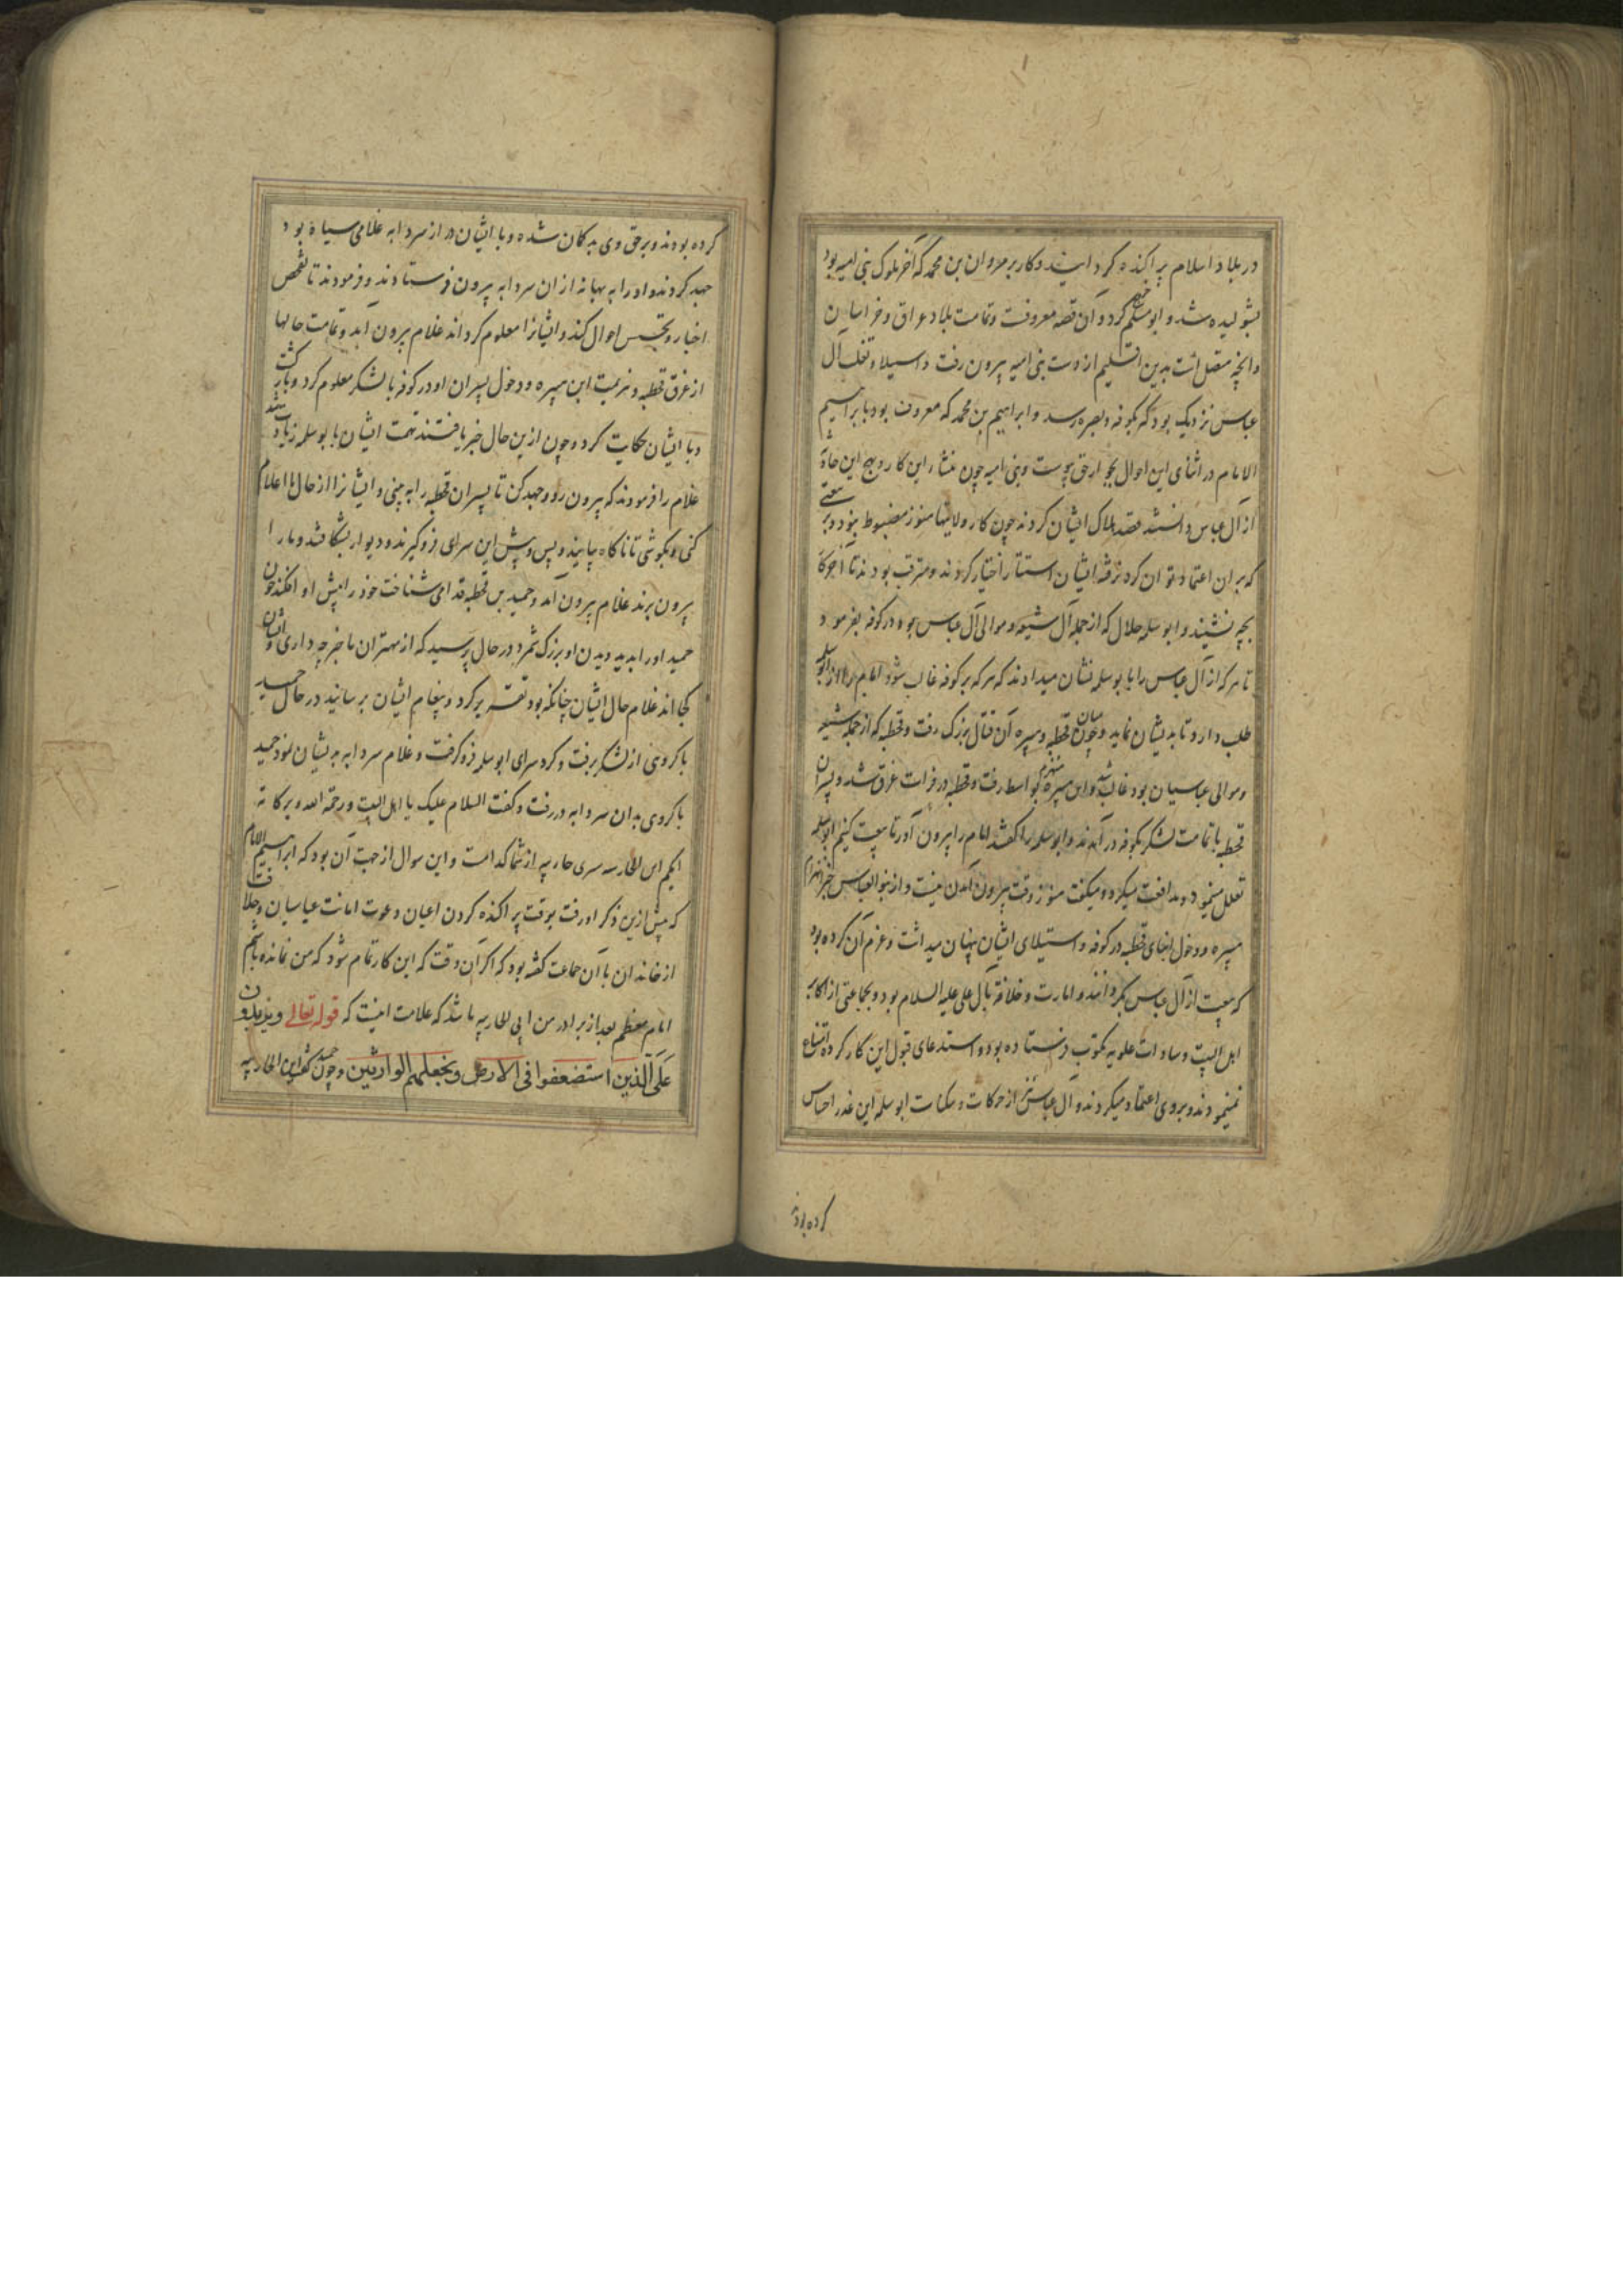 در بلاد اسلام پراکنده کردانیدند و کار بر مروان بن محمد که آخر ملوک بنی امیه بود
بشولیده شد و ابو مسلم خروج کرد و آن قصه معروفست و تمامت بلاد عراق و خراسان
و آنچه متصل است بدین اقلیم از دست بنی امیه بیرون رفت و استیلا و تغلب آل
عباس نزدیک بود که بکوفه و بصره رسد و ابراهیم بن محمد که معروف بود بابراهیم
الامام در اثنای این احوال بجوار حق پیوست و بنی امیه چون منشاء این کار و هیج این حادثه
از آل عباس دانستند قصد هلاک ایشان کردند چون کار ولایتها هنوز مضبوط نبود و بیعتی
که بر آن اعتماد توان کرد نرفته ایشان استتار اختیار کردند و مترقب بودند تا آخر کار
بچه نشیند و ابو سلمه خلال که از جمله آل شیعه و موالی آل عباس بود در کوفه بفرمود
تا هر که از آل عباس را با بوسلمه نشان میدادند که هر که بر کوفه غالب شود امام را از ابو سلمه
طلب دارد تا بدیشان نماید و چون میان قحطبه و هبیره آن قتال بزرک رفت و قحطبه که از جمله شیعه
و موالی عباسیان بود غالب شد و ابن هبیره منهزم بواسط رفت و قحطبه در فرات غرق شد و پسران
قحطبه با تمامت لشکر بکوفه در آمدند و ابو سلمه را کفتند امام را بیرون آور تا بیعت کنیم ابو سلمه
تعلل مینمود و مدافعت میکرد و میکفت هنوز وقت بیرون آمدن نیست و از بنو العباس خبر انهزام
هبیره و دخول ابنای قحطبه در کوفه و استیلای ایشان پنهان میداشت و عزم آن کرده بود
که بیعت از آل عباس بکرداند و امارت و خلافت بآل علی علیه السلام بود و بجماعتی از اکابر
اهل البیت و سادات علویه مکتوب فرستاده بود و استدعای قبول این کار کرده امتناع
نمینمودند و بر وی اعتماد میکردند و آل عباس نیز از حرکات و سکنات ابو سلمه این غدر احساس
کرده بودند
کرده بودند و بر حق وی بد کمان شده و با ایشان در آن سردابه غلامی سیاه بود
جهد کردند و او را به بهانه از آن سردابه بیرون فرستادند و فرمودند تا تفحص
اخبار و تجسس احوال کند و ایشانرا معلوم کرداند غلام بیرون آمد و تمامت حالها
از غرق قحطبه و هزیمت ابن هبیره و دخول پسران او در کوفه با لشکر معلوم کرد و بازکشت
و با ایشان حکایت کرد و چون ازین حال خبر یافتند تهمت ایشان با بو سلمه زیادت شد
غلام را فرمودند که بیرون رو و جهد کن تا پسران قحطبه را به بینی و ایشانرا از حال ما اعلام
کنی و بکوشی تا ناکاه بیایند و پس و پیش این سرای فرو کیرند و دیوار بشکافند و ما را
بیرون برند غلام بیرون آمد و حمید بن قحطبه قدامی شناخت خود را پیش او افکند چون
حمید او را بدید دیدن او بزرک شمرد در حال پرسید که از مهتران ما خبر چه داری و ایشان
کجا اند غلام حال ایشان چنانکه بود تقریر کرد و پیغام ایشان برسانید در حال حمید
با کروهی از لشکر برفت و کرد سرای ابو سلمه فرو کرفت و غلام سردابه بدیشان نمود حمید
با کروهی بدان سردابه در رفت و کفت السلام علیک یا اهل البیت و رحمة الله و برکاته
ایکم ابن الحارثیه از شما کدامست و این سوال از جهت آن بود که ابراهیم الامام
که پیش ازین ذکر او رفت بوقت پراکنده کردن اعیان دعوت امامت عباسیان و خلافت
از خاندان با آن جماعت کفته بود که اکر آن وقت که این کار تمام شود که من نمانده باشم
امام معظم بعد از برادر من ابن الحارثیه باشد که علامت اینست که قوله تعالی و نرید ان نمن
علی الذین استضعفوا فی الارض و نجعلهم الوارثین و چون حمید کفت ابن الحارثیه